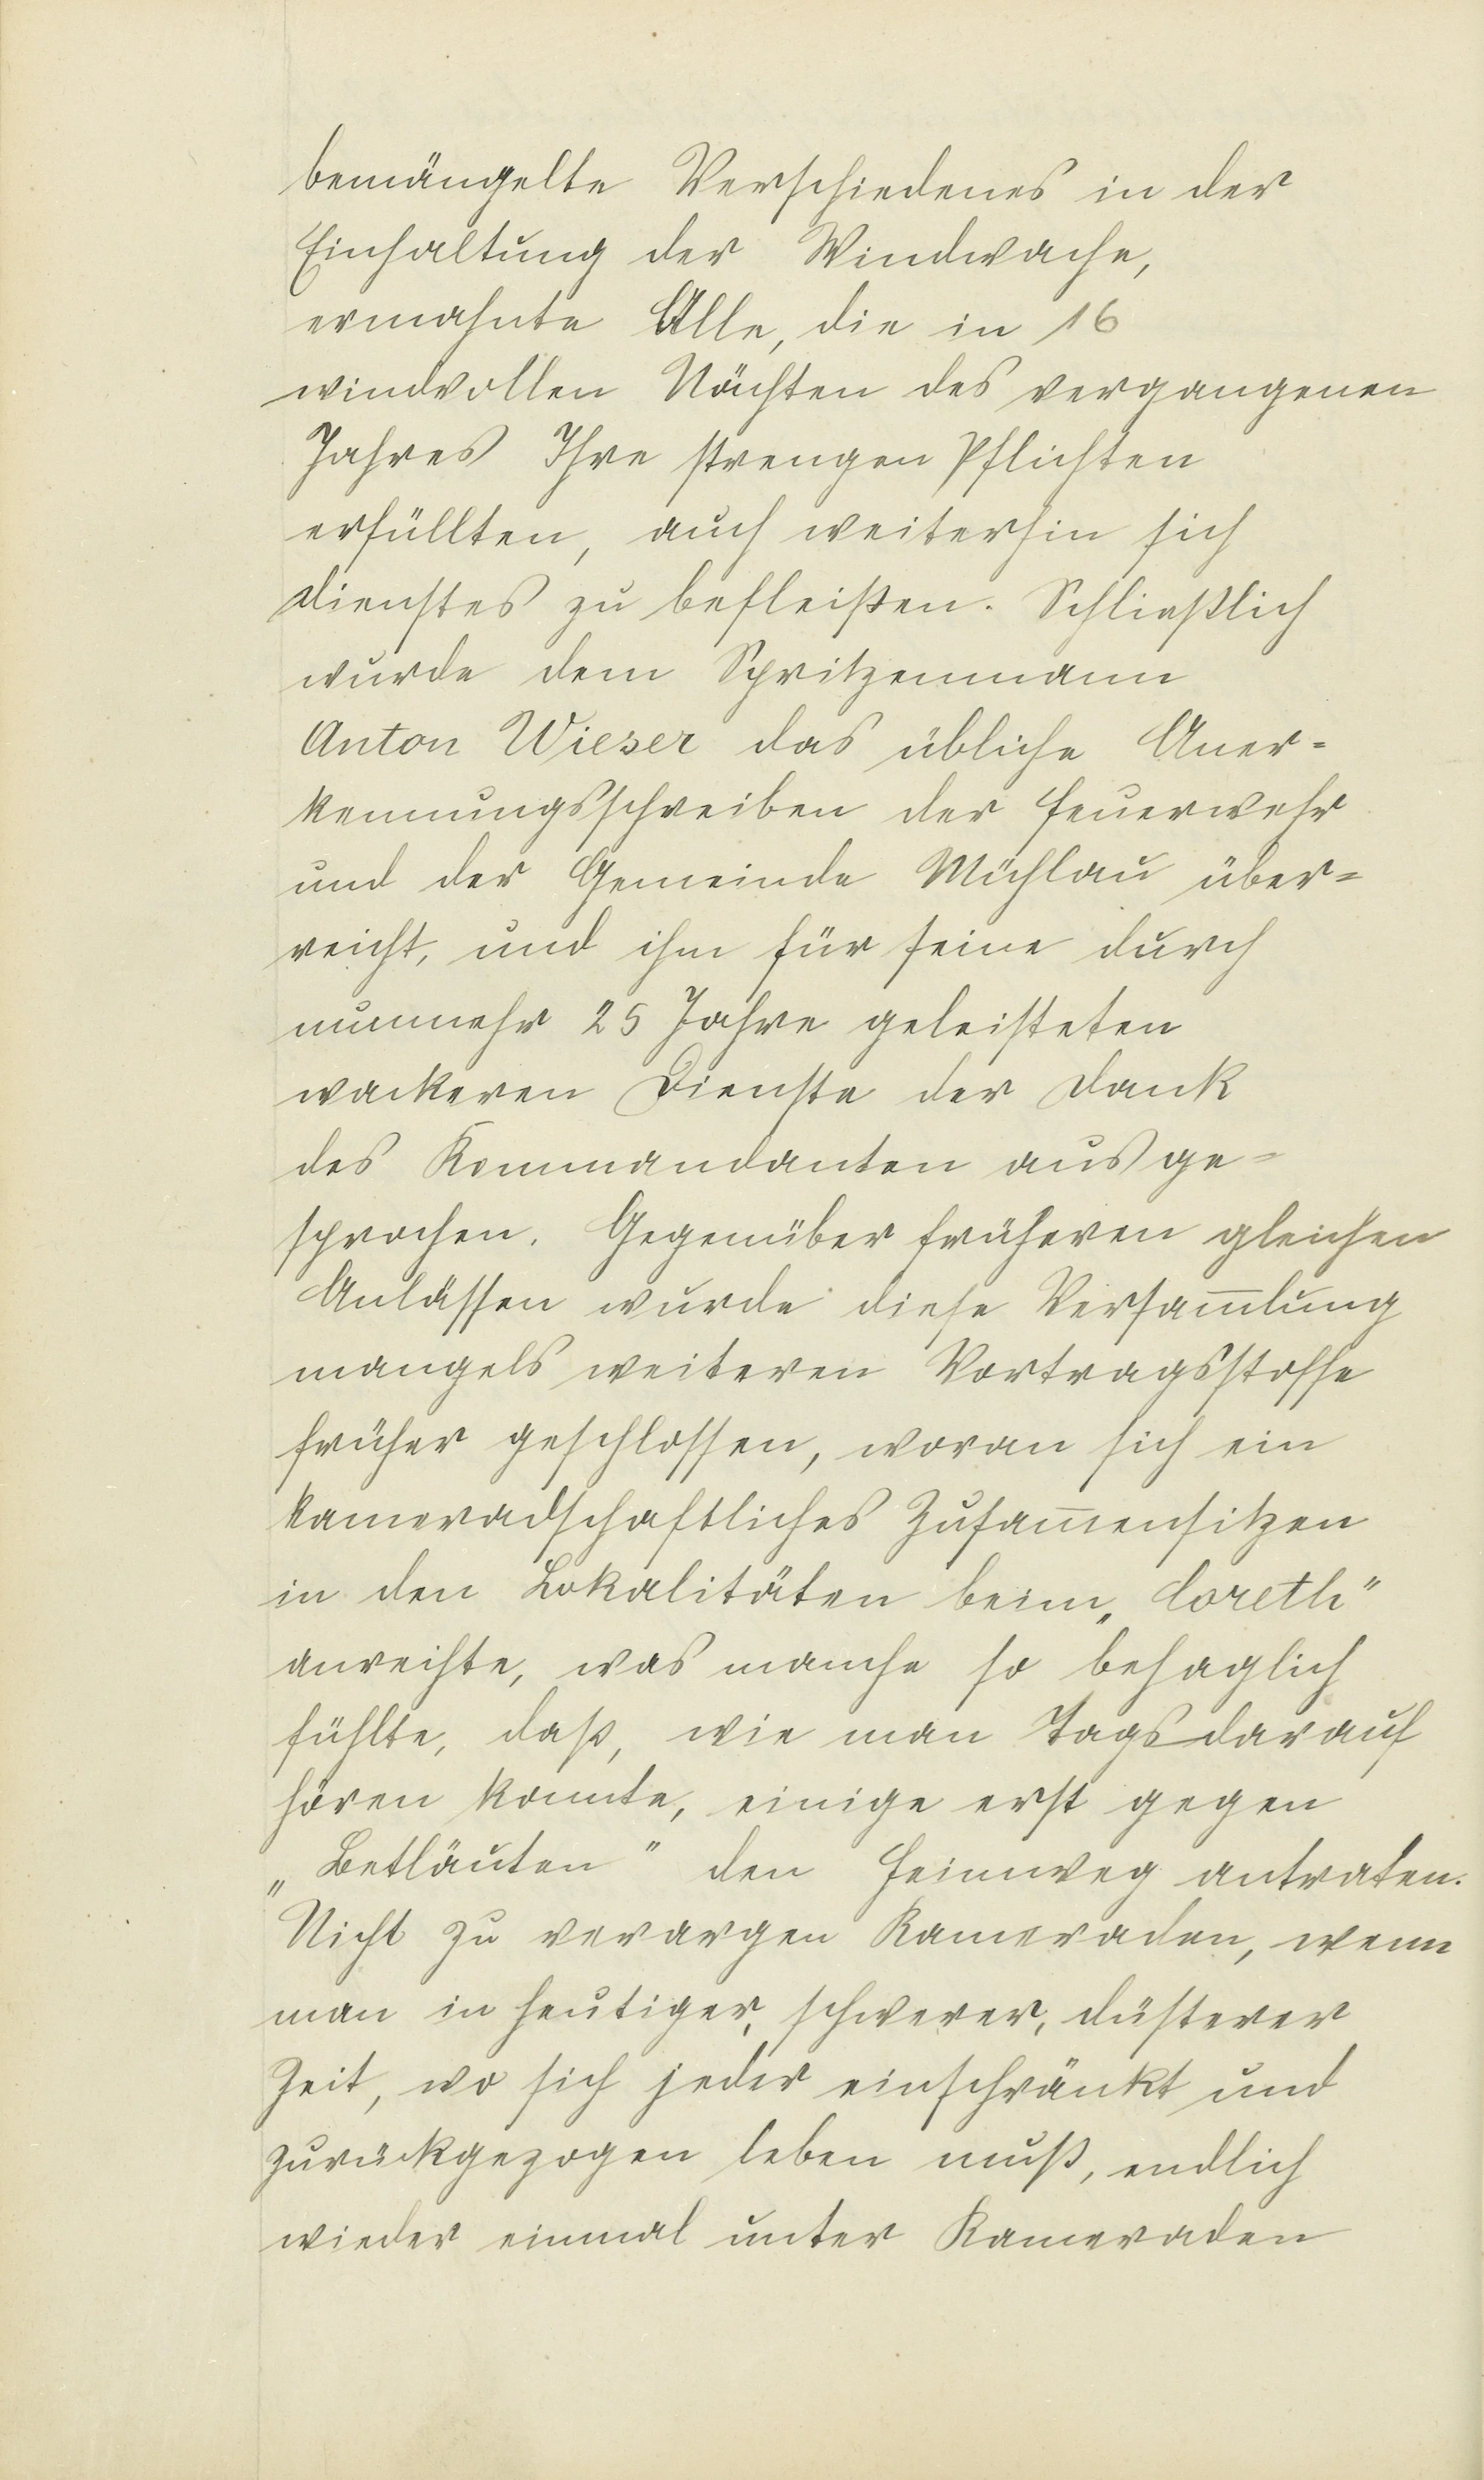 bemängelte Verschiedenes in der
Einhaltung der Windwache,
ermahnte Alle, die in 16
windvollen Nächten des vergangenen
Jahres Ihre strengen Pflichten
erfüllten, auch weiterhin sich
dienstes zu befleißen. Schließlich
wurde dem Spritzenmann
Anton Wieser das übliche Aner-
kennungsschreiben der Feuerwehr
und der Gemeinde Mühlau über-
reicht, und ihm für seine durch
nunmehr 25 Jahre geleisteten
wackeren Dienste der Dank
des Kommandanten ausge-
sprochen. Gegenüber früheren gleichen
Anlässen wurde diese Versam̅lung
mangels weiteren Vortragsstoffe
früher geschlossen, woran sich ein
kameradschaftliches Zusam̅ensitzen
in den Lokalitäten beim „Coreth"
anreihte, was manche so behaglich
fühlte, daß, wie man Tags darauf
hören konnte, einige erst gegen
„Betläuten" den Heimweg antraten.
Nicht zu verargen Kameraden, wenn
man in heutiger, schwerer, düsterer
Zeit, wo sich jeder einschränkt und
zurückgezogen leben muß, endlich
wieder einmal unter Kameraden